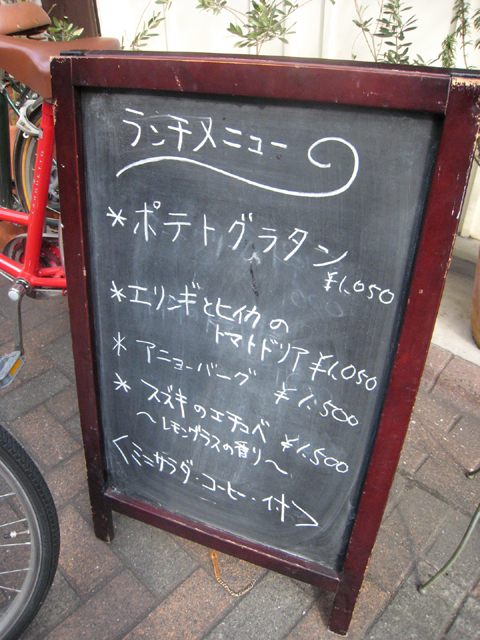 ランチメニュー
*ポテトグラタン
¥1,050
*エリンギとヒイカの
トマトドリア ¥1,050
*アニョーバーグ
¥1,500
*スズキのエチュベ
¥1,500
～レモングラスの香り～
<ミニサラダ・コーヒー・付>